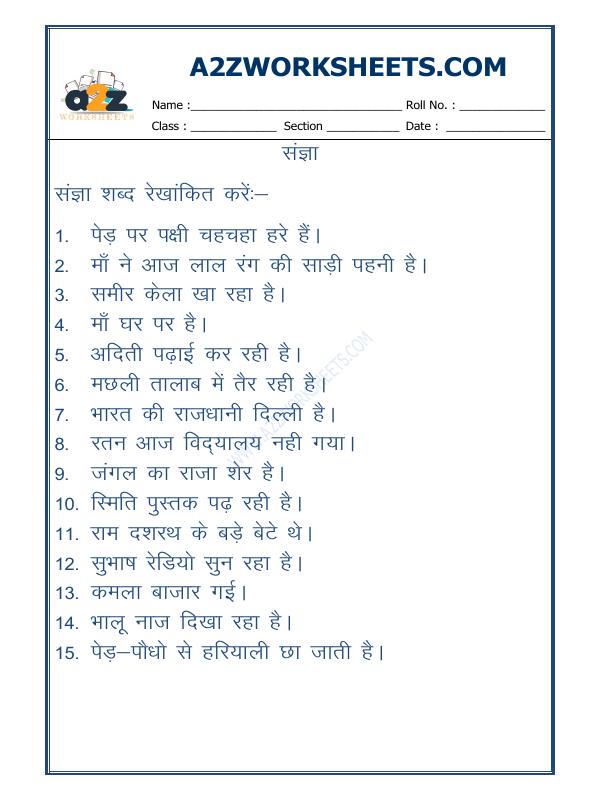 A2ZWORKSHEETS.COM
a2z
WORKSHEETS
Name :______________________________ Roll No. : ____________
Class : ____________ Section __________ Date : ______________
संज्ञा
संज्ञा शब्द रेखांकित करें:–
1. पेड़ पर पक्षी चहचहा हरे हैं।
2. माँ ने आज लाल रंग की साड़ी पहनी है।
3. समीर केला खा रहा है।
4. माँ घर पर है।
5. अदिती पढ़ाई कर रही है।
6. मछली तालाब में तैर रही है।
7. भारत की राजधानी दिल्ली है।
8. रतन आज विद्यालय नही गया।
9. जंगल का राजा शेर है।
10. स्मिति पुस्तक पढ़ रही है।
11. राम दशरथ के बड़े बेटे थे।
12. सुभाष रेडियो सुन रहा है।
13. कमला बाजार गई।
14. भालू नाज दिखा रहा है।
15. पेड़–पौधो से हरियाली छा जाती है।
WWW.A2ZWORKSHEETS.COM